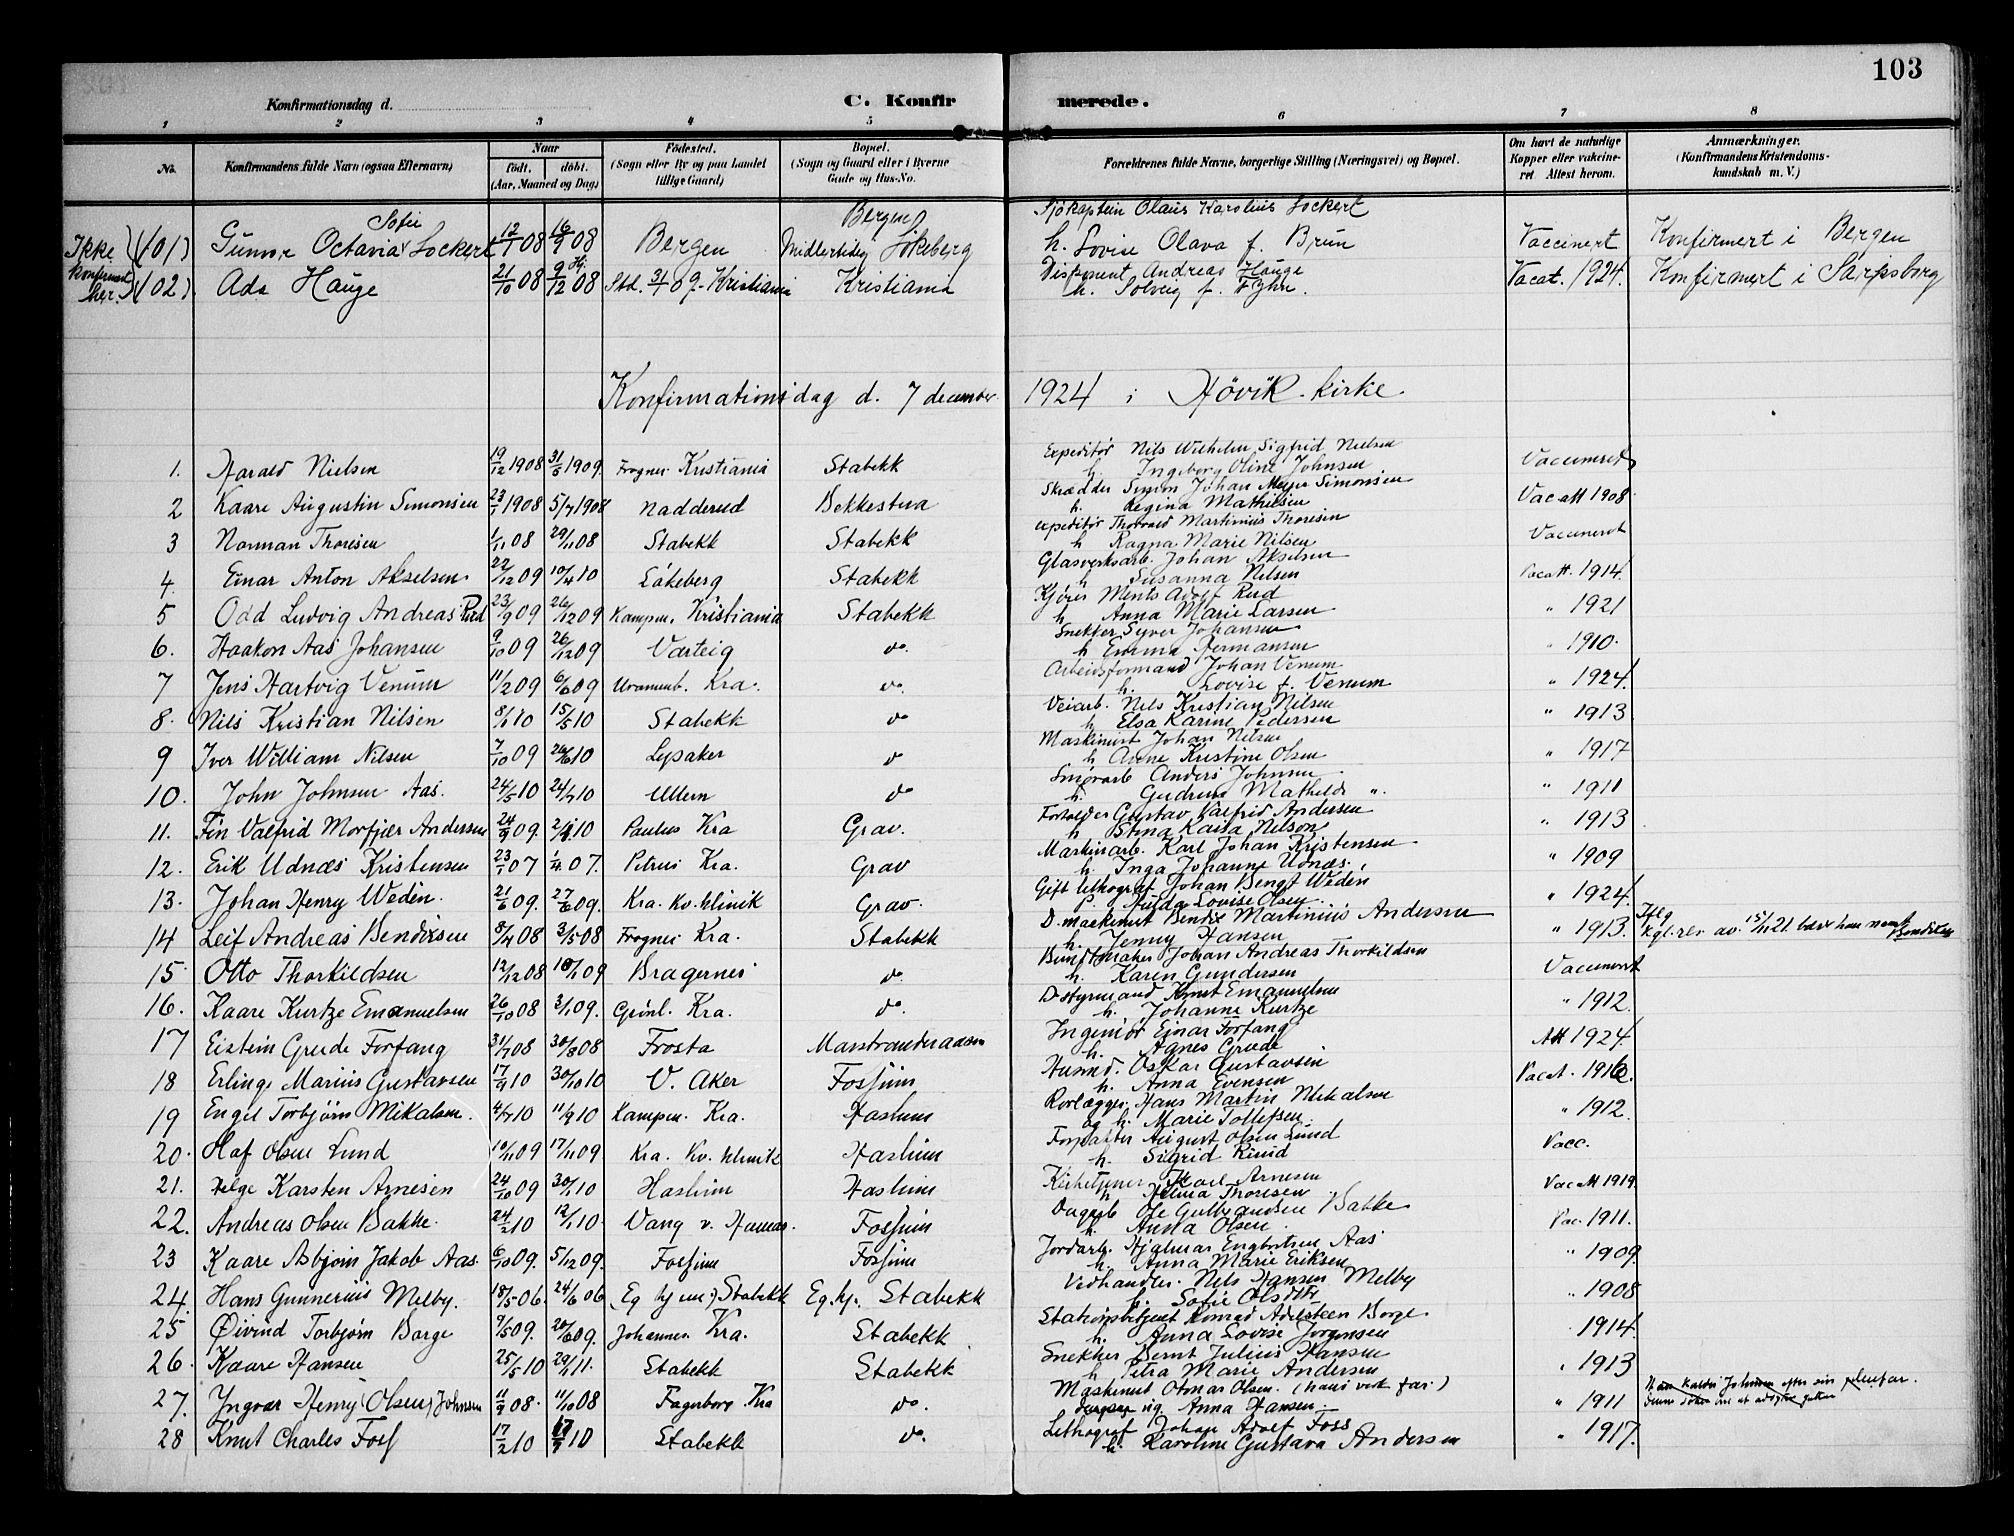 103
Konfirmationsdag d. C. Konfir merede.
1 2 3 4 5 6 7 8
No. Konfirmandens fulde Navn (ogsaa Efternavn) Naar født. døbt. (Aar, Maaned og Dag) Fødested. (Sogn eller By og paa Landet tillige Gaard) Bopæl. (Sogn og Gaard eller i Byerne Gade og Hus-No. Forældrenes fulde Navne, borgerlige Stilling (Næringsvei) og Bopæl. Om havt de naturlige Kopper eller vakcineret Attest herom. Anmærkninger. (Konfirmandens Kristendomskundskab m. V.)
Sofie Bergen Sjökaptein Olaus Karolius Lockert
Ikke (101) Gunvor Octavia Lockert 12/1 08 16/9 08 Bergen Midlertidig Lökeberg h. Lovise Olava f. Brun Vaccinert Konfirmert i Bergen
konfirmert her. (102) Ada Hauge 21/10 08 9/12 08 Hj. Std. 31/1 09 - Kristiania Kristiania Disponent Andreas Hauge
h. Solveig f. Vacat. 1924. Konfirmert i Sarpsborg
Konfirmationsdag d. 7 december 1924 i Hövik kirke
Expeditör Nils Wilhelm Sigfrid Nielsen
1. Harald Nielsen 19/12 1908 31/5 1909 Frogner Kristiania Stabekk h. Ingeborg Oline Johnsen Vaccineret
Skrædder Simon Johan Meyer Simonsen
2 Kaare Augustin Simonsen 23/1 1908 5/7 1908 Nadderud Bekkestua h. Regina Mathilsen Vac att 1908
expeditör Thorvald Martinius Thoresen
3 Norman Thoresen 1/11 08 29/11 08 Stabekk Stabekk h Ragna Marie Nilsen Vaccineret
Glasverksarb. Johan Akselsen
4. Einar Anton Akselsen 22/12 09 10/4 10 Lökeberg Stabekk h Susanna Nilsen Vacatt. 1914
Kjörer Ments Adolf Rud
5 Odd Ludvig Andreas Rud 23/9 09 26/12 09 Kampen, Kristiania Stabekk h Anna Marie Larsen " 1921
Snekker Syver Johansen
6. Haakon Aas Johansen 9/10 09 26/12 09 Varteig do. h Emma Hermansen " 1910.
Arbeidsformand Johan Venum
7 Jens Hartvig Venum 11/2 09 6/6 09 Uranienb. Kra. do. h. Lovise f. Venum " 1924.
Veiarb. Nils Kristian Nilsen
8. Nils Kristian Nilsen 8/1 10 15/5 10 Stabekk do h Elsa Karine Pedersen " 1913
Maskinist Johan Nilsen
9 Iver William Nilsen 7/10 09 26/6 10 Lysaker do h Anne Kristine Olsen " 1917
Smörarb Anders Johnsen
10. John Johnsen Aas. 24/5 10 24/7 10 Ullern do h. Gudrun Mathilde ". " 1911
Forholder Gustav Valfrid Andersen
11. Fin Valfrid Morfjær Andersen 24/9 09. 2/1 10 Paulus Kra Grav. h Stina Kaisa Nilson " 1913
Maskinarb. Karl Johan Kristensen
12. Erik Udnæs Kristensen 23/1 07 1/4 07. Petrus Kra. Grav h. Inga Johanne Udnæs. " 1909
Gift lithograf Johan Bengt Wedén
13. Johan Henry Wedén. 21/6 09. 27/6 09. Kra. Kv. klinik Grav. Hulda Lovise Olsen " 1924.
D. maskinist Bendix Martinius Andersen
14 Leif Andreas Bendixsen 8/4 08 3/5 08 Frogner Kra. Stabekk h. Jenny Hansen " 1913. Iflg Kgl. res av. 15/1 21 bærer han navnet Bendixen
Buntmaker Johan Andreas Thorkildsen
15. Otto Thorkildsen 12/12 08 10/1 09 Bragernes do. h. Karen Gundersen Vaccineret
D. styrmand Knut Emanuelsen
16. Kaare Kurtze Emanuelsen 26/10 08 3/1 09. Grönl. Kra. do. h. Johanne Kurtze " 1912.
Ingeniör Einar Forfang
17 Eistein Grude Forfang 31/7 08 30/8 08 Frosta Marstranderaasen h. Agnes Grude Att 1924
Husmd. Oskar Gustavsen
18 Erling Marius Gustavsen 17/9 10 30/10 10 V. Aker Fossum h. Anna Evensen Vacat. 1916
Rörlægger Hans Martin Mikalsen
19 Engel Torbjörn Mikalsen. 4/7 10 11/9 10 Kampen. Kra. Haslum og h. Marie Tollefsen. " 1912.
Forpakter August Olsen Lund
20. Haf Olsen Lund 10/11 09 17/11 09 Kra. Kv. klinik Haslum h. Sigrid Ruud Vacc.
Kirketjener Karl Arnesen
21. Helge Karsten Arnesen 24/10 09 30/1 10 Haslum Haslum h Helma Thoresen Vac att 1919
Ole Gulbrandsen Bakke
22. Andreas Olsen Bakke. 24/2 10 12/1 10. Vang v. Hamar. Fossum h. Anna Olsen Vac. 1911.
Jordarb. Hjalmar Engbretsen Aas
23 Kaare Asbjörn Jakob Aas. 6/10 09. 5/12 09. Fossum Fossum h. Anna Marie Eriksen " 1909
Vedhandler. Nils Hansen Melby
24. Hans Gunnerius Melby. 18/5 06. 24/6 06 Eg hjem Stabekk Eg. hj. Stabekk h. Sofie Olsdtr " 1908
Stationsbetjent Konrad Adelsteen Borge
25 Øivind Torbjörn Borge 9/5 09. 20/6 09. Johannes Kra. Stabekk h. Anna Lovise Jörgensen 1914
Snekker Bernt Julius Hansen
26. Kaare Hansen 25/5 10 29/1 11. Stabekk Stabekk h Petra Marie Andersen " 1913
Maskinist Otmar Olsen. (hans virk far.)
27. Ingvar Henry (Olsen) Johnsen 11/9 08. 11/10 08 Fagerborg Kra do. ug. Anna Hansen. " 1911
Lithograf Johan Adolf Foss
28 Knut Charles Foss 17/2 10 17/9 10 Stabekk do. h. Karoline Gustava Andersen " 1917.